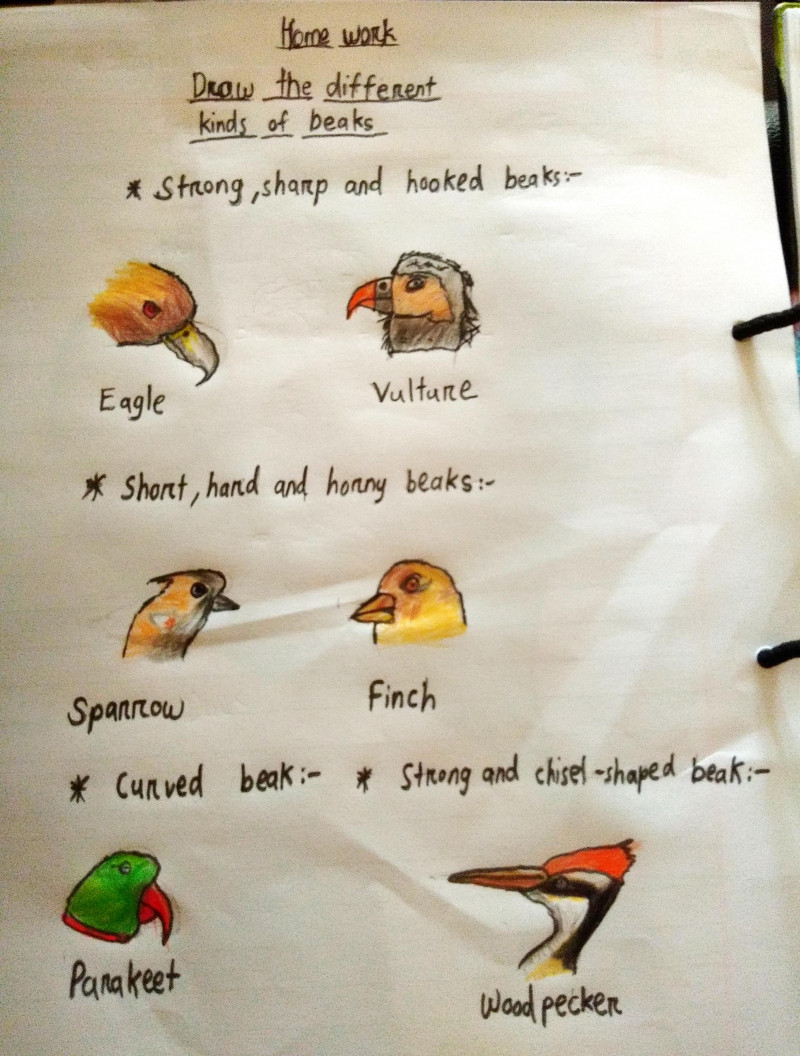 Home work
Draw the different
kinds of beaks
* Strong, sharp and hooked beaks:-
Eagle
Vulture
* Short, hard and horny beaks:-
Sparrow
Finch
* Curved beak:-
* Strong and chisel-shaped beak:-
Parakeet
Woodpecker